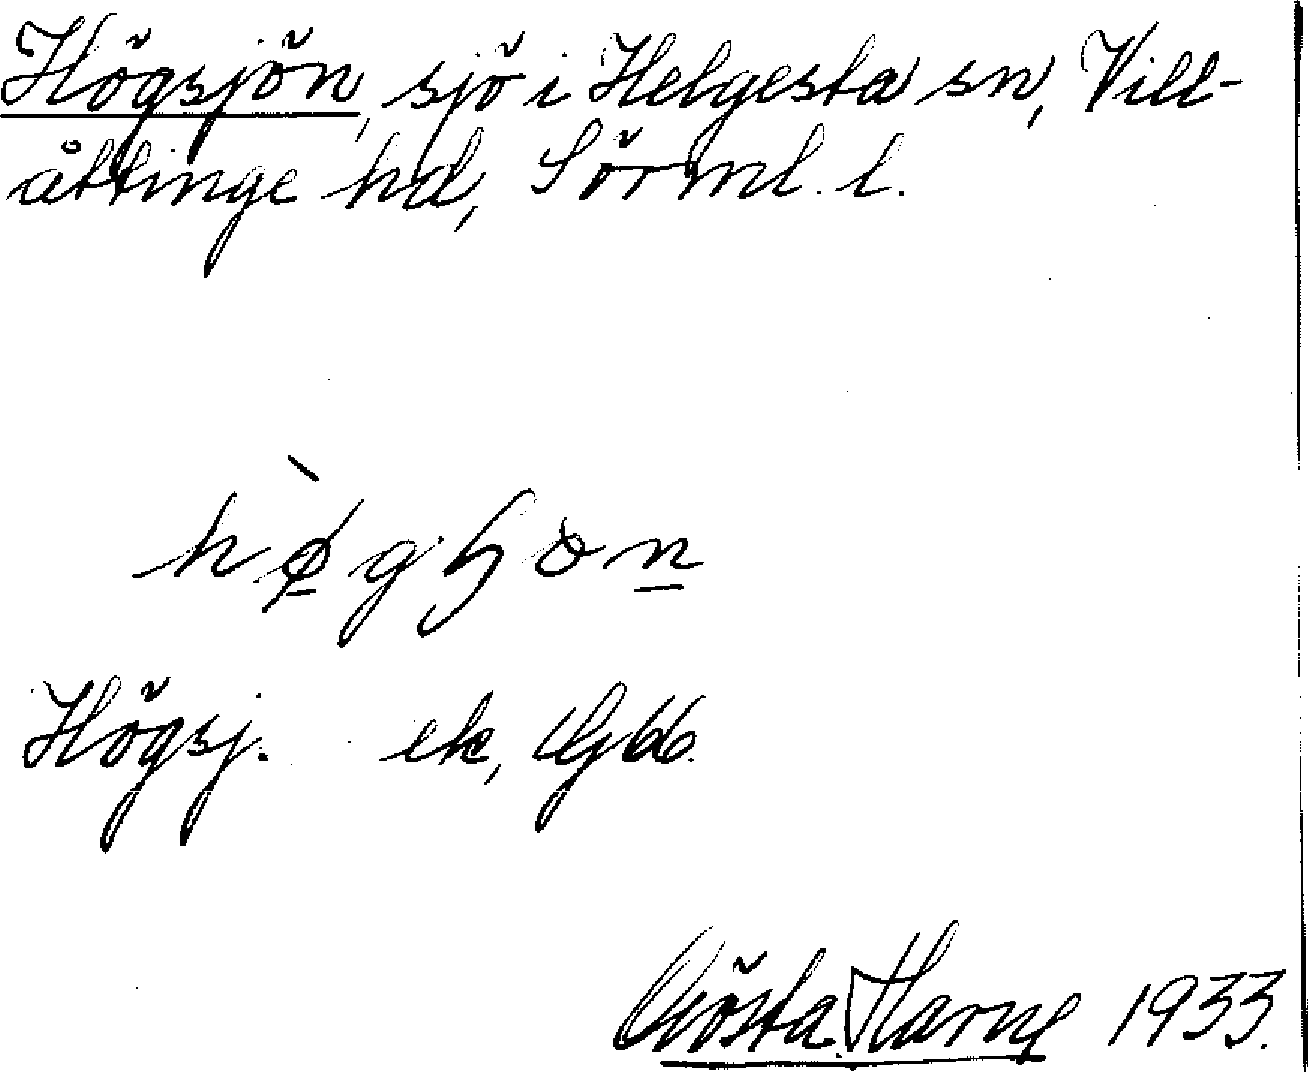 Högsjön, sjö i Helgesta sn, Vill-
åttinge hd, Sörml. l.
Högsj. ek, Gbb.
Gösta Harne 1933.